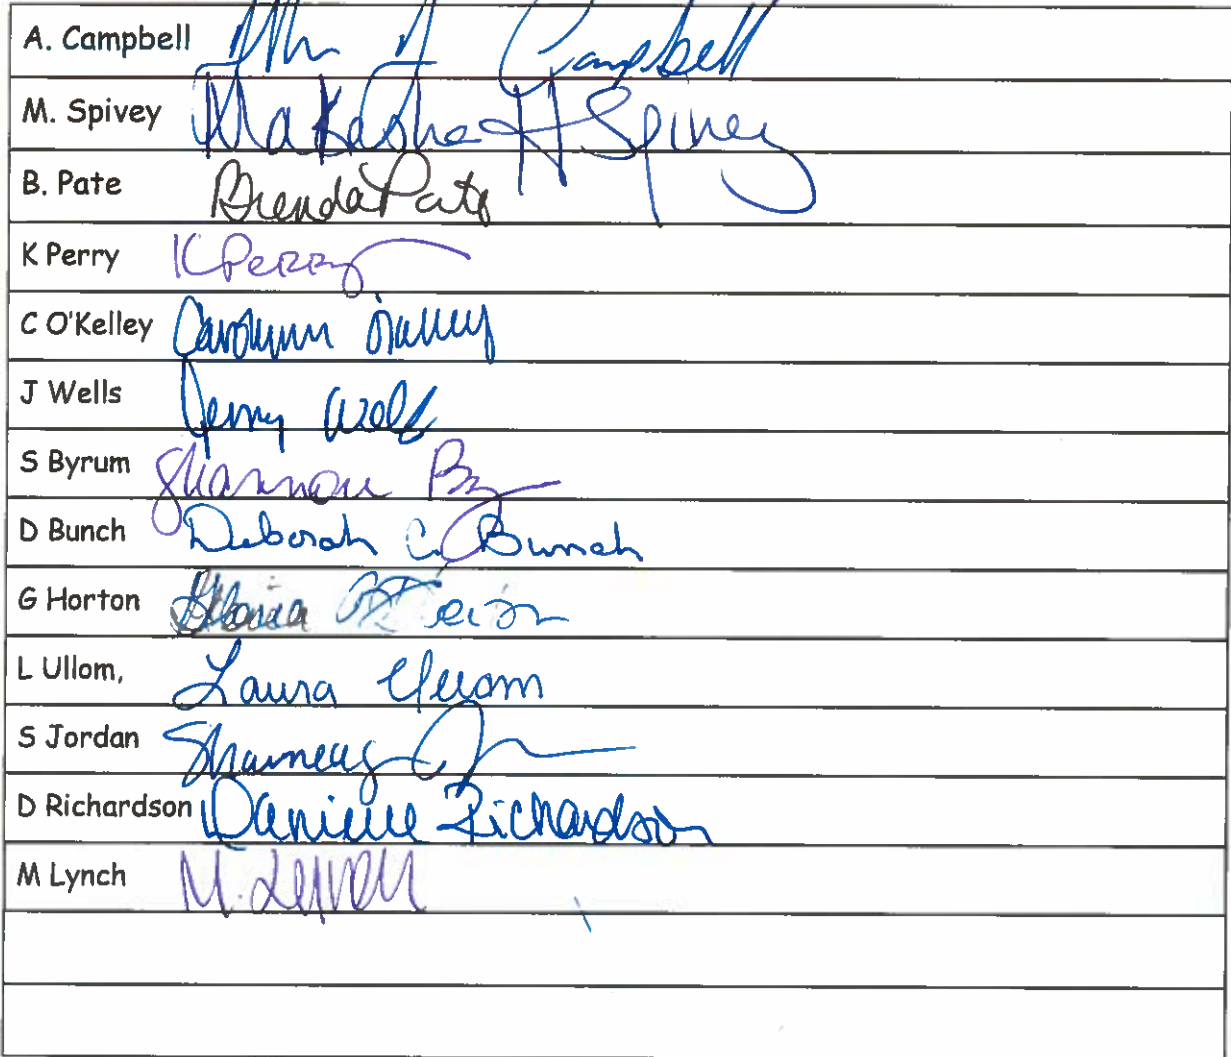 A. Campbell Campbell
M. Spivey Makasha H Spivey
B. Pate Brenda Pate
K Perry K Perry
C O'Kelley Carolynn O'Kelley
J Wells Jenny Wells
S Byrum Shannon
D Bunch Deborah C. Bunch
G Horton Gloria
L Ullom, Laura Ullom
S Jordan
D Richardson Danielle Richardson
M Lynch M. Lynch